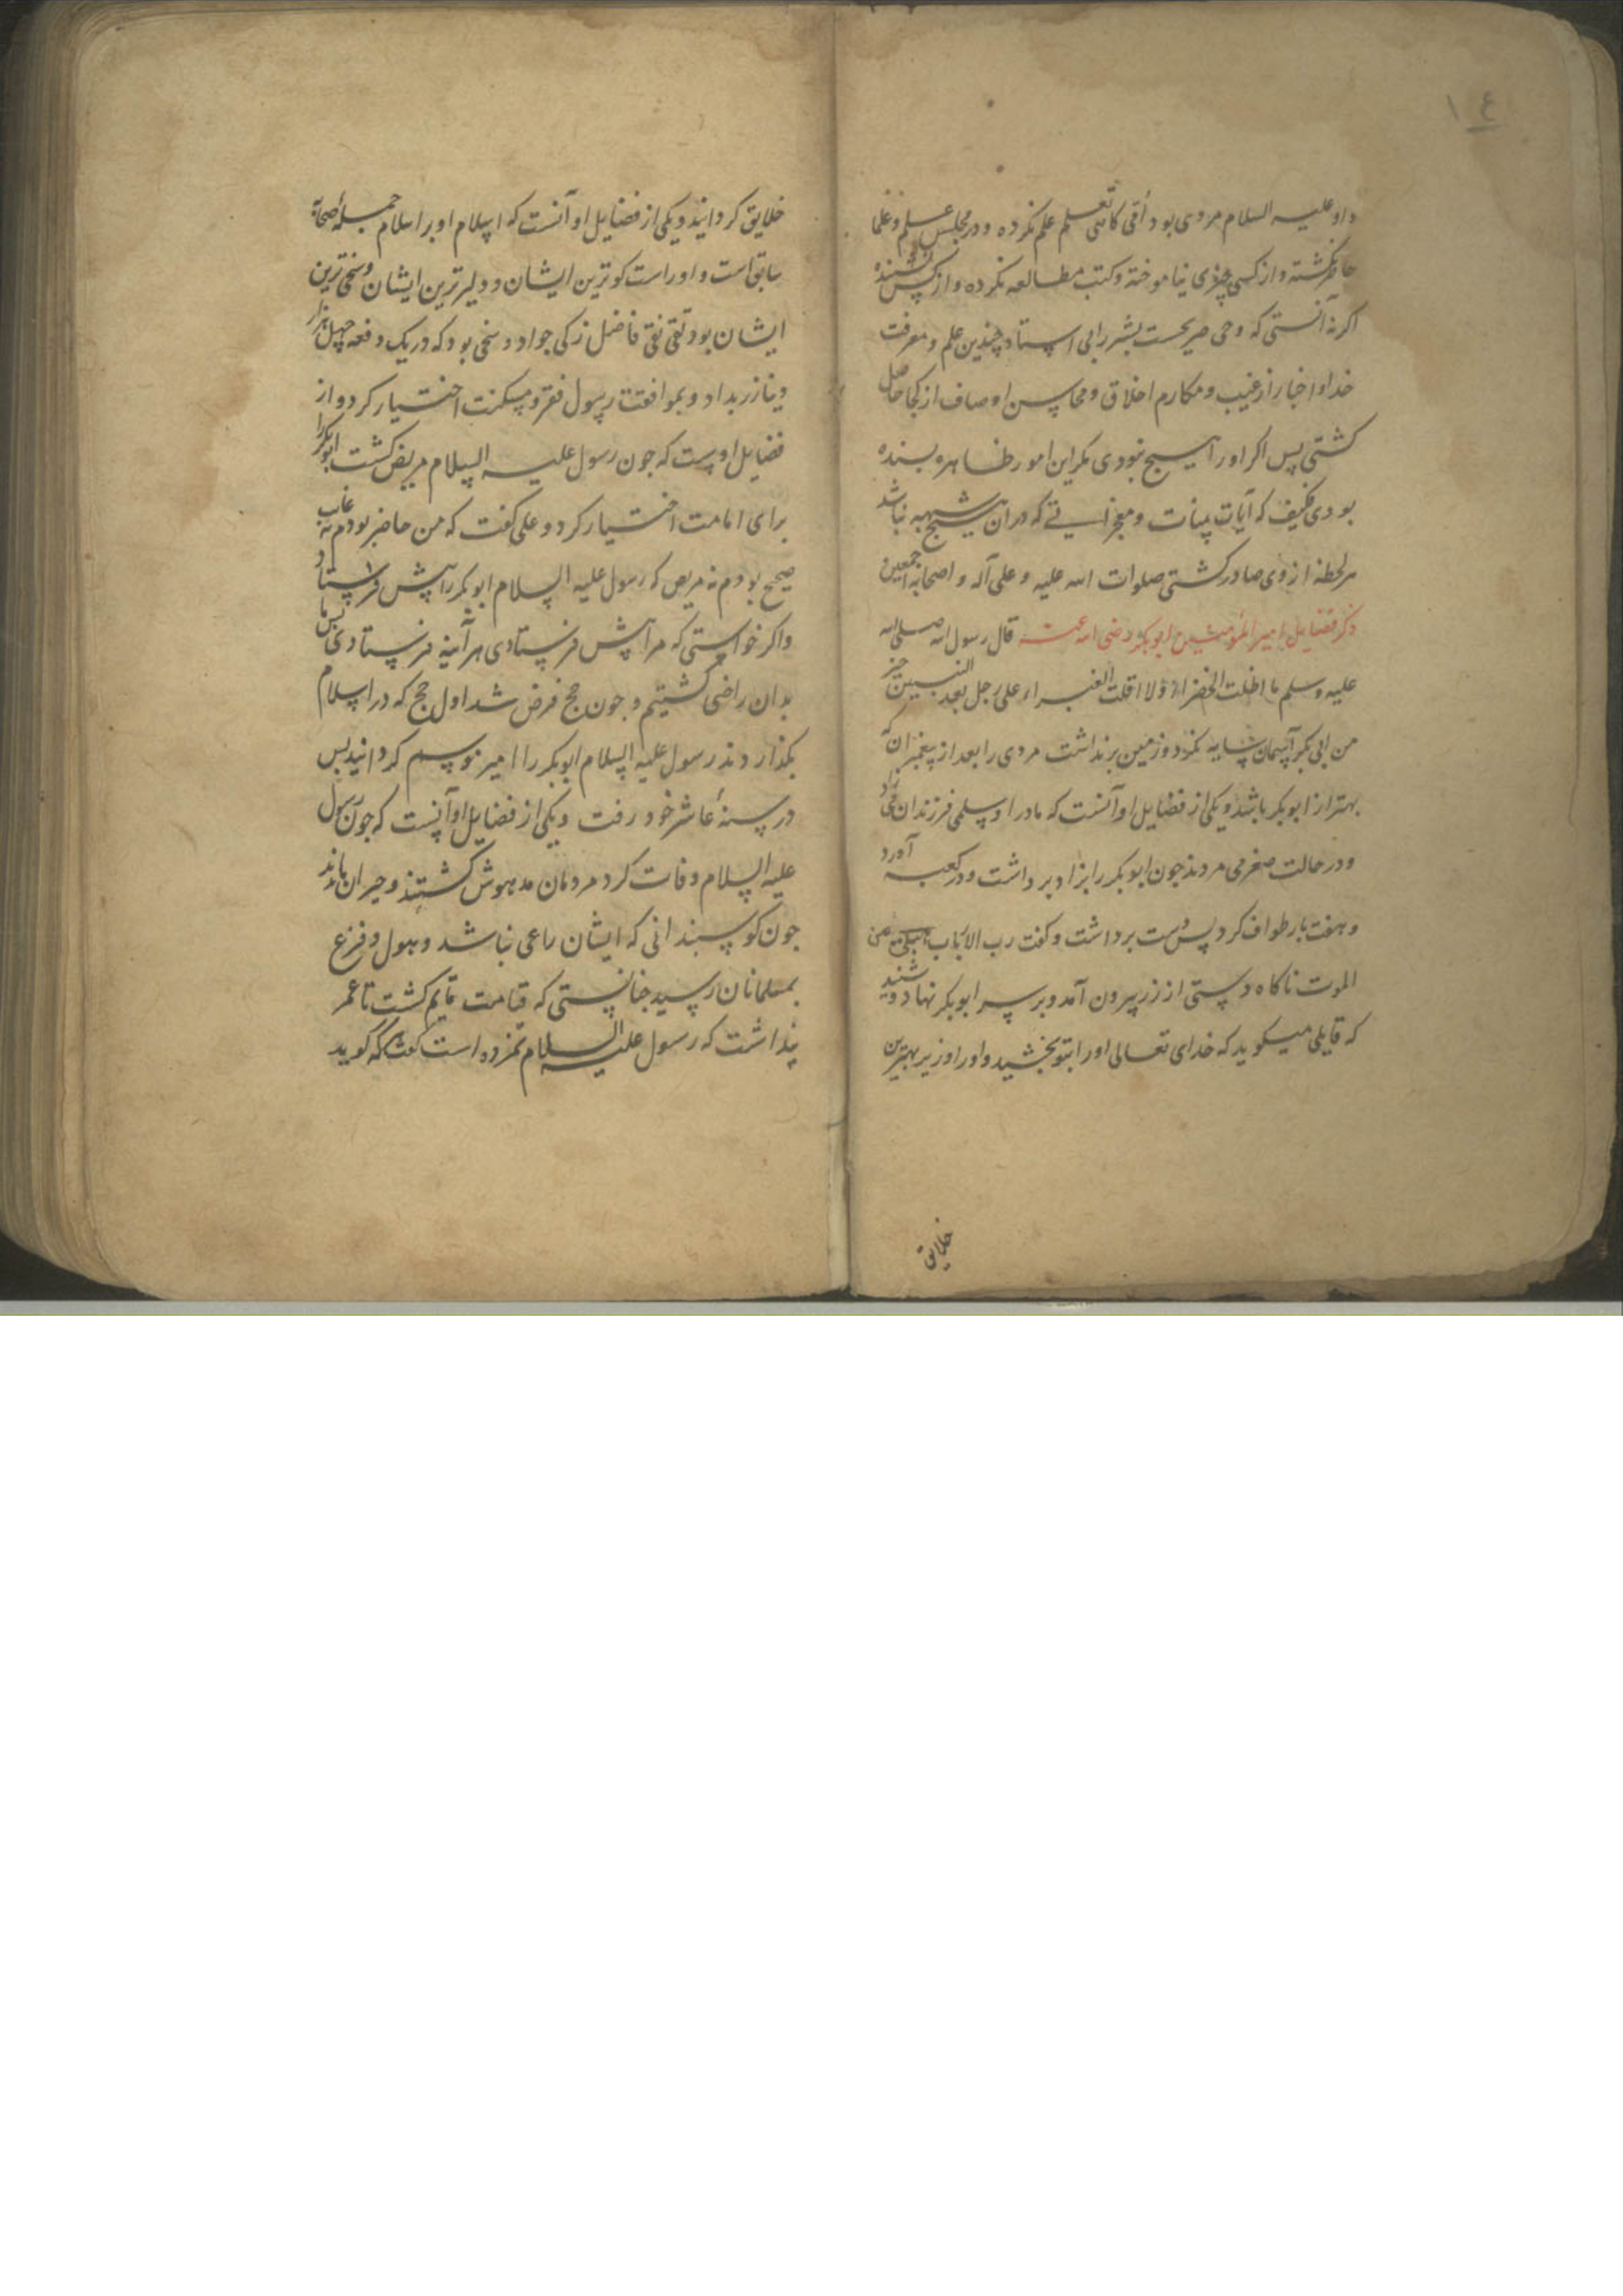 ١٤
و او علیه السلام مردی بود اُمّی کاهی تعلم علم نکرده و در مجلس علم و علما
حاضر نکشته و از کسی چیزی نیاموخته و کتب مطالعه نکرده و از کس نشنیده
اکر نه آنستی که وحی صریحست بشر را بی استاد چندین علم و معرفت
خدا و اخبار از غیب و مکارم اخلاق و محاسن اوصاف از کجا حاصل
کشتی پس اکر او را هیچ نبودی مکر این امور ظاهره بسنده
بودی فکیف که آیات بینات و معجزاتی که در ان هیچ شبهه نباشد
هر لحظه از وی صادر کشتی صلوات الله علیه و علی آله و اصحابه اجمعین
ذکر فضایل امیر المؤمنین ابوبکر رضی الله عنه قال رسول الله صلی الله
علیه وسلم ما اظلت الخضراء ولا اقلت الغبراء علی رجل بعد النبیین خیر
من ابی بکر آسمان سایه نکرد و زمین برنداشت مردی را بعد از پیغمبران که
بهتر از ابوبکر باشد و یکی از فضایل او آنست که مادر او سلمی فرزندان می زاد
و در حالت صغر می مردند چون ابوبکر را بزاد برداشت و در کعبه آورد
و هفت بار طواف کرد پس دست برداشت و کفت رب الارباب من
الموت ناکاه دستی از زر بیرون آمد و بر سر ابوبکر نهاد و شنید
که قایلی میکوید که خدای تعالی او را بتو بخشید و او را وزیر بهترین
خلایق
خلایق کردانید و یکی از فضایل او آنست که اسلام او بر اسلام جمله صحابه
سابق است و او راست کوترین ایشان و دلیرترین ایشان و سخی ترین
ایشان بود تقی نقی فاضل زکی جواد و سخی بود که در یک دفعه چهل هزار
دینار زر بداد و بموافقت رسول فقر و مسکنت اختیار کرد و از
فضایل اوست که چون رسول علیه السلام مریض کشت ابوبکر را
برای امامت اختیار کرد و علی کفت که من حاضر بودم نه غایب
صحیح بودم نه مریض که رسول علیه السلام ابوبکر را پیش فرستاد
و اکر خواستی که مرا پیش فرستادی هر آینه فرستادی پس ما
بدان راضی کشتیم و چون حج فرض شد اول حج که در اسلام
بکذاردند رسول علیه السلام ابوبکر را امیر موسم کردانید پس
در سنهٔ عاشر خود رفت و یکی از فضایل او آنست که چون رسول
علیه السلام وفات کرد مردمان مدهوش کشتند و حیران ماندند
چون کوسبندانی که ایشان راعی نباشد و هول و فزع
بمسلمانان رسید چنانستی که قیامت قایم کشت تا عمر
پنداشت که رسول علیه السلام نمرده است کفت هر که کوید